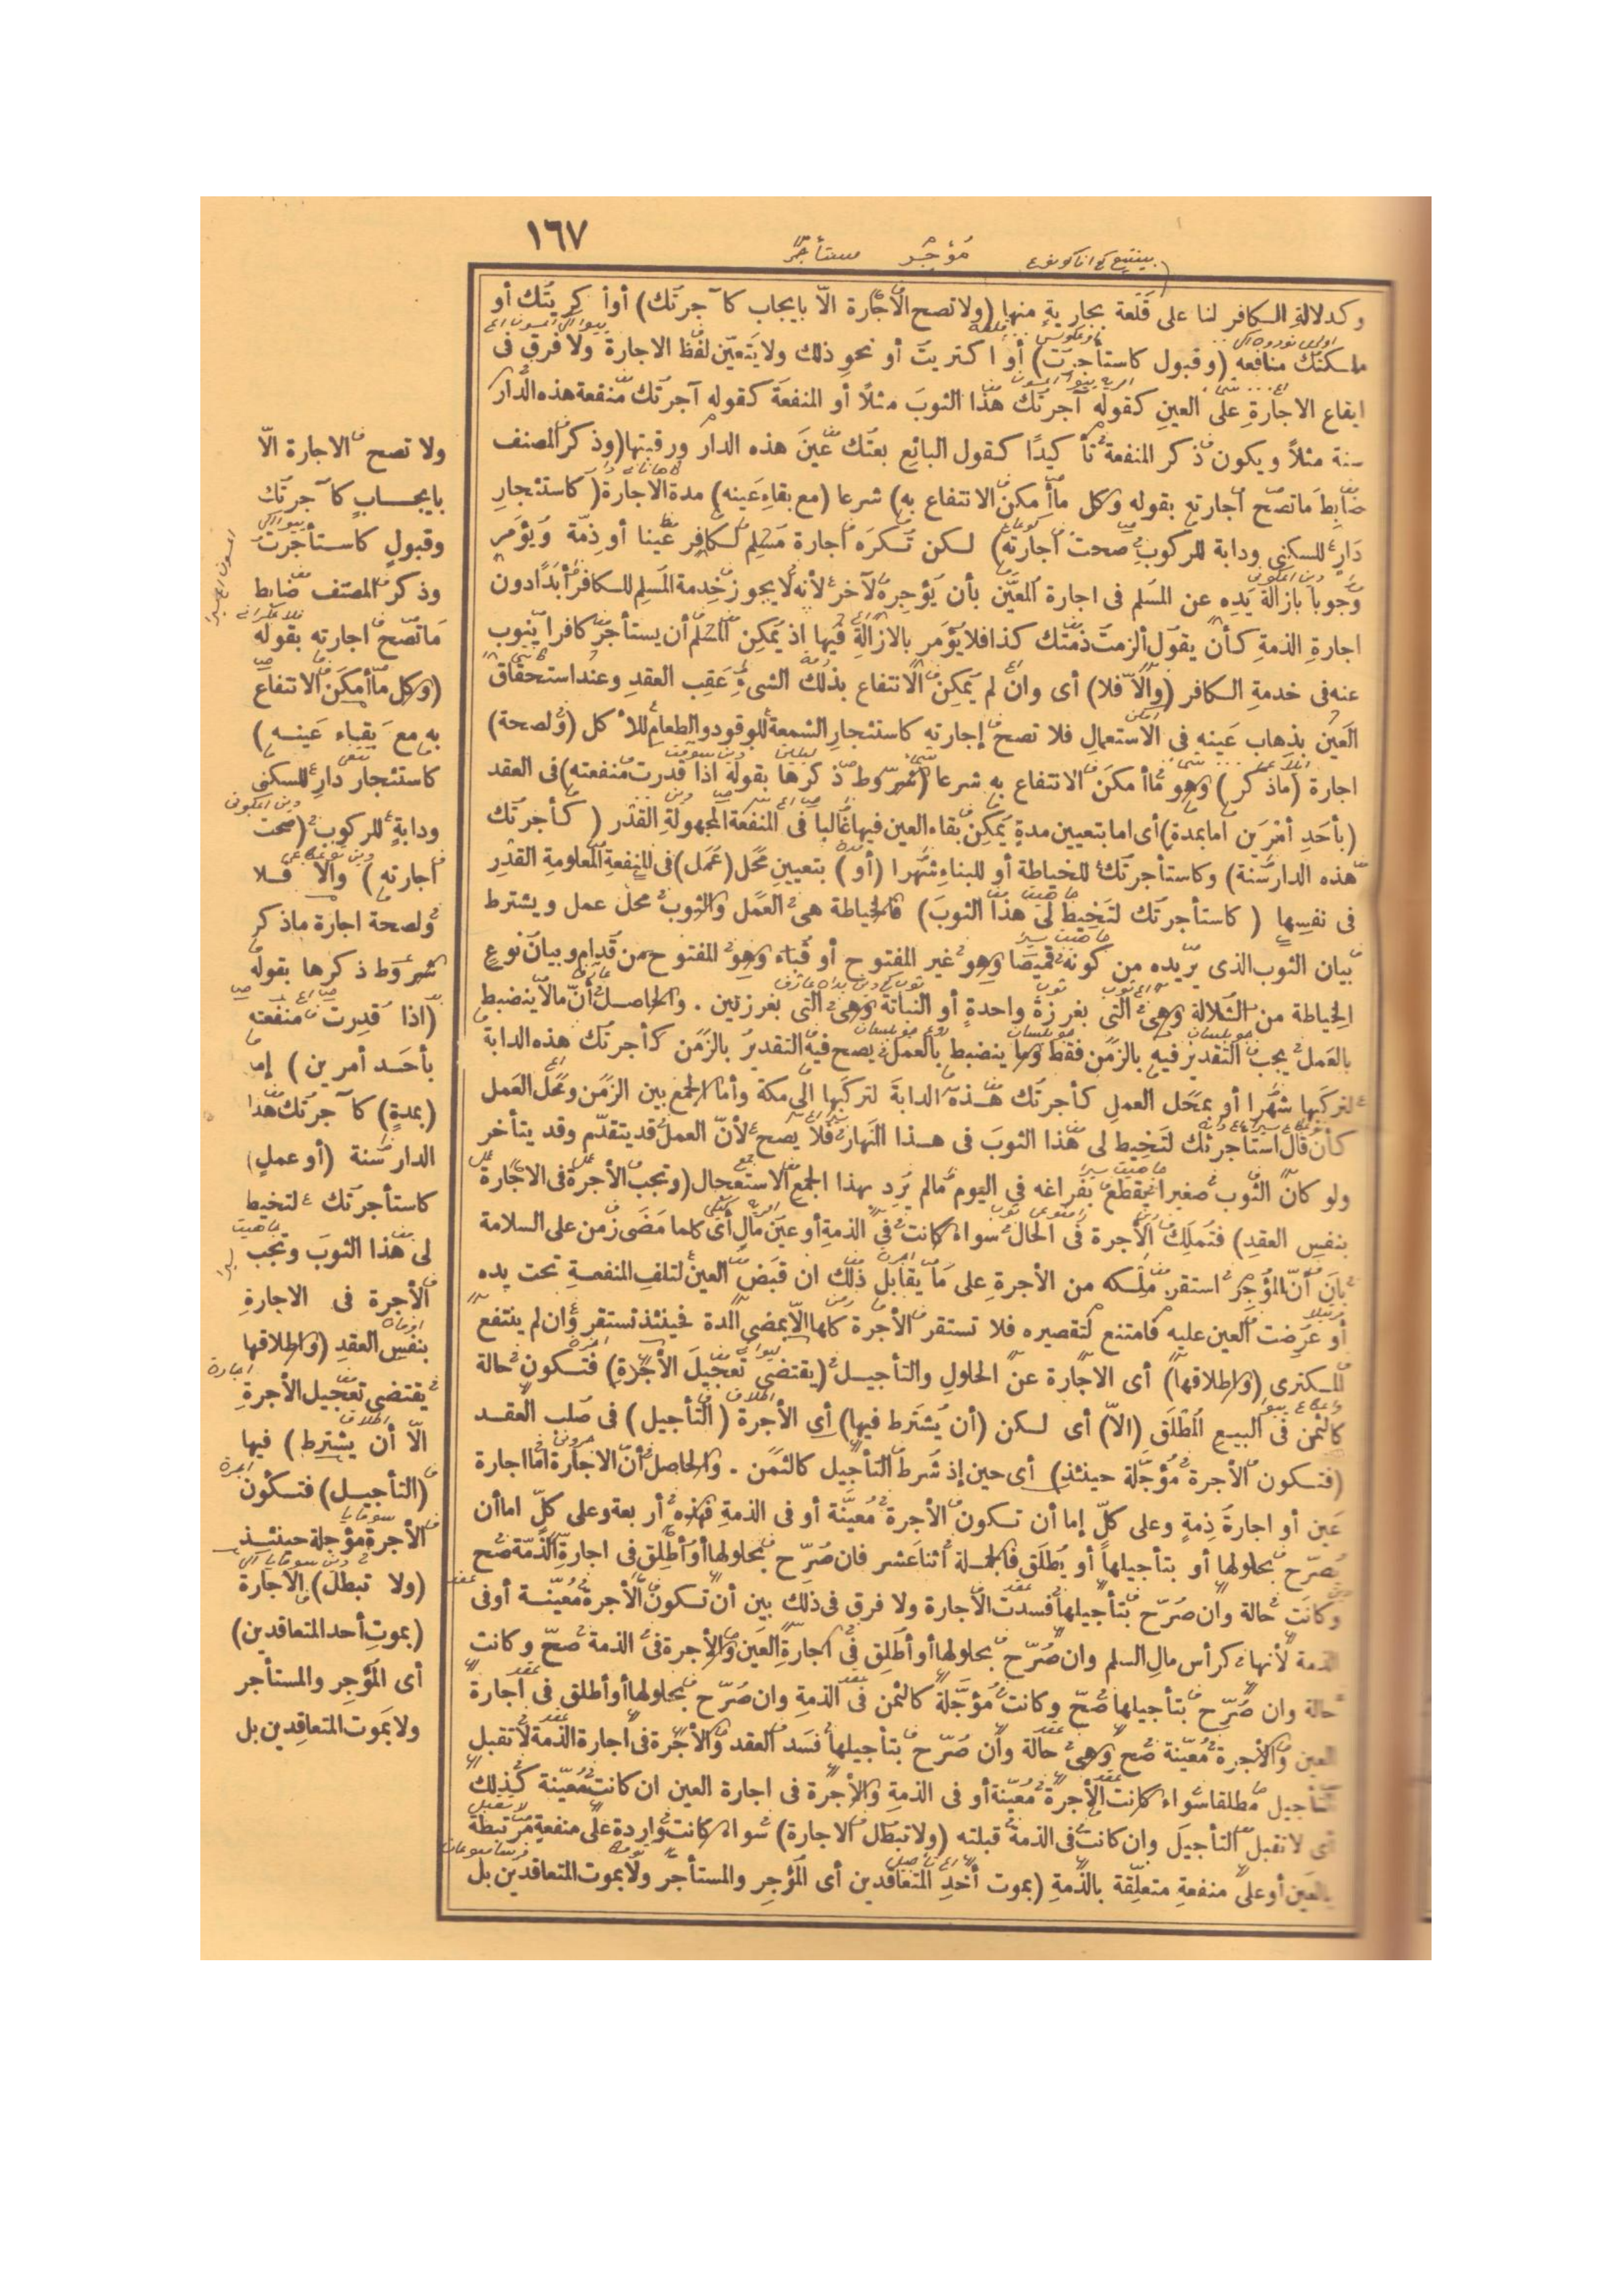 ١٦٧
مُؤْجِرْ مستأجر
وكدلالة الكافر لنا على قلعة بجارية منها (ولا تصح الاجارة الّا بايجاب كآجرتك) أو أكريتك أو
ملكتك منافعه (وقبول كاستأجرت) أو اكتريت أو نحو ذلك ولا يتعين لفظ الاجارة ولا فرق فى
ايقاع الاجارة على العين كقوله آجرتك هذا الثوب مثلًا أو المنفعة كقوله آجرتك منفعة هذه الدار
سنة مثلًا ويكون ذكر المنفعة تأكيدًا كقول البائع بعتك عين هذه الدار ورقبتها (وذكر المصنف
ضابط ما تصح اجارته بقوله وكل ما أمكن الانتفاع به) شرعا (مع بقاء عينه) مدة الاجارة (كاستئجار
دار للسكنى ودابة للركوب صحت اجارته) لكن تكره اجارة مسلم لكافر عينا أو ذمة ويؤمر
وجوبا بازالة يده عن المسلم فى اجارة المعيّن بأن يؤجره لآخر لأنه لا يجوز خدمة المسلم للكافر أبدًا دون
اجارة الذمة كأن يقول ألزمت ذمتك كذا فلا يؤمر بالازالة فيها اذ يمكن المسلم أن يستأجر كافرا ينوب
عنه فى خدمة الكافر (والّا فلا) أى وان لم يمكن الانتفاع بذلك الشىء عقب العقد وعند استحقاق
العين بذهاب عينه فى الاستعمال فلا تصح إجارته كاستئجار الشمعة للوقود والطعام للأكل (ولصحة)
اجارة (ما ذكر) وهو ما أمكن الانتفاع به شرعا (شروط ذكرها بقوله اذا قدرت منفعته) فى العقد
(بأحد أمرين اما بمدة) أى اما بتعيين مدة يمكن بقاء العين فيها غالبا فى المنفعة المجهولة القدر (كأجرتك
هذه الدار سنة) وكاستأجرتك للخياطة أو للبناء شهرا (أو) بتعيين محل (عمل) فى المنفعة المعلومة القدر
فى نفسها (كاستأجرتك لتخيط لى هذا الثوب) فالخياطة هى العمل والثوب محل عمل ويشترط
بيان الثوب الذى يريده من كونه قميصا وهو غير المفتوح أو قباء وهو المفتوح من قدام وبيان نوع
الخياطة من الشلالة وهى التى بغرزة واحدة أو النباتة وهى التى بغرزتين . والحاصل أنّ ما لا ينضبط
بالعمل يجب التقدير فيه بالزمن فقط وما ينضبط بالعمل يصح فيه التقدير بالزمن كأجرتك هذه الدابة
لتركبها شهرا أو بمحل العمل كأجرتك هذه الدابة لتركبها الى مكة وأما الجمع بين الزمن ومحل العمل
كأن قال استأجرتك لتخيط لى هذا الثوب فى هذا النهار فلا يصح لأنّ العمل قد يتقدّم وقد يتأخر
ولو كان الثوب صغيرا يقطع بفراغه فى اليوم ما لم يرد بهذا الجمع الاستعجال (وتجب الأجرة فى الاجارة
بنفس العقد) فتملك الأجرة فى الحال سواء كانت فى الذمة أو عين مال أى كلما مضى زمن على السلامة
بان أنّ المؤجر استقر ملكه من الأجرة على ما يقابل ذلك ان قبض العين لتلف المنفعة تحت يده
أو عرضت العين عليه فامتنع لتقصيره فلا تستقر الأجرة كلها الّا بمضى المدة فحينئذ تستقر وان لم ينتفع
المكترى (واطلاقها) أى الاجارة عن الحلول والتأجيل (يقتضى تعجيل الأجرة) فتكون حالة
كالثمن فى البيع المطلق (الّا) أى لكن (أن يشترط فيها) أى الأجرة (التأجيل) فى صلب العقد
(فتكون الأجرة مؤجلة حينئذ) أى حين إذ شرط التأجيل كالثمن . والحاصل أنّ الاجارة اما اجارة
عين أو اجارة ذمة وعلى كلّ إما أن تكون الأجرة معيّنة أو فى الذمة فهذه أربعة وعلى كلّ اما أن
يصرّح بحلولها أو بتأجيلها أو يطلق فالجملة اثنا عشر فان صرّح بحلولها أو أطلق فى اجارة الذمّة صح
وكانت حالة وان صرّح بتأجيلها فسدت الاجارة ولا فرق فى ذلك بين أن تكون الأجرة معيّنة أو فى
الذمة لأنها كرأس مال السلم وان صرّح بحلولها أو أطلق فى اجارة العين والأجرة فى الذمة صحّ وكانت
حالة وان صرّح بتأجيلها صحّ وكانت مؤجّلة كالثمن فى الذمة وان صرّح بحلولها أو أطلق فى اجارة
العين والأجرة معيّنة صح وهى حالة وان صرّح بتأجيلها فسد العقد والأجرة فى اجارة الذمّة لا تقبل
التأجيل مطلقا سواء كانت الأجرة معيّنة أو فى الذمة والأجرة فى اجارة العين ان كانت معيّنة كذلك
أى لا تقبل التأجيل وان كانت فى الذمة قبلته (ولا تبطل الاجارة) سواء كانت واردة على منفعة مرتبطة
بالعين أو على منفعة متعلّقة بالذمة (بموت أحد المتعاقدين أى المؤجر والمستأجر ولا بموت المتعاقدين بل
ولا تصح الاجارة الّا
بايجاب كآجرتك
وقبول كاستأجرت
وذكر المصنف ضابط
ما تصح اجارته بقوله
(وكل ما أمكن الانتفاع
به مع بقاء عينه)
كاستئجار دار للسكنى
ودابة للركوب (صحت
اجارته) والا فلا
ولصحة اجارة ما ذكر
شروط ذكرها بقوله
(اذا قدرت منفعته
بأحد أمرين) إما
(بمدة) كآجرتك هذا
الدار سنة (أو عمل)
كاستأجرتك لتخيط
لى هذا الثوب وتجب
الأجرة فى الاجارة
بنفس العقد (واطلاقها
يقتضى تعجيل الأجرة
الّا أن يشترط) فيها
(التأجيل) فتكون
الأجرة مؤجلة حينئذ
(ولا تبطل) الاجارة
(بموت أحد المتعاقدين)
أى المؤجر والمستأجر
ولا بموت المتعاقدين بل